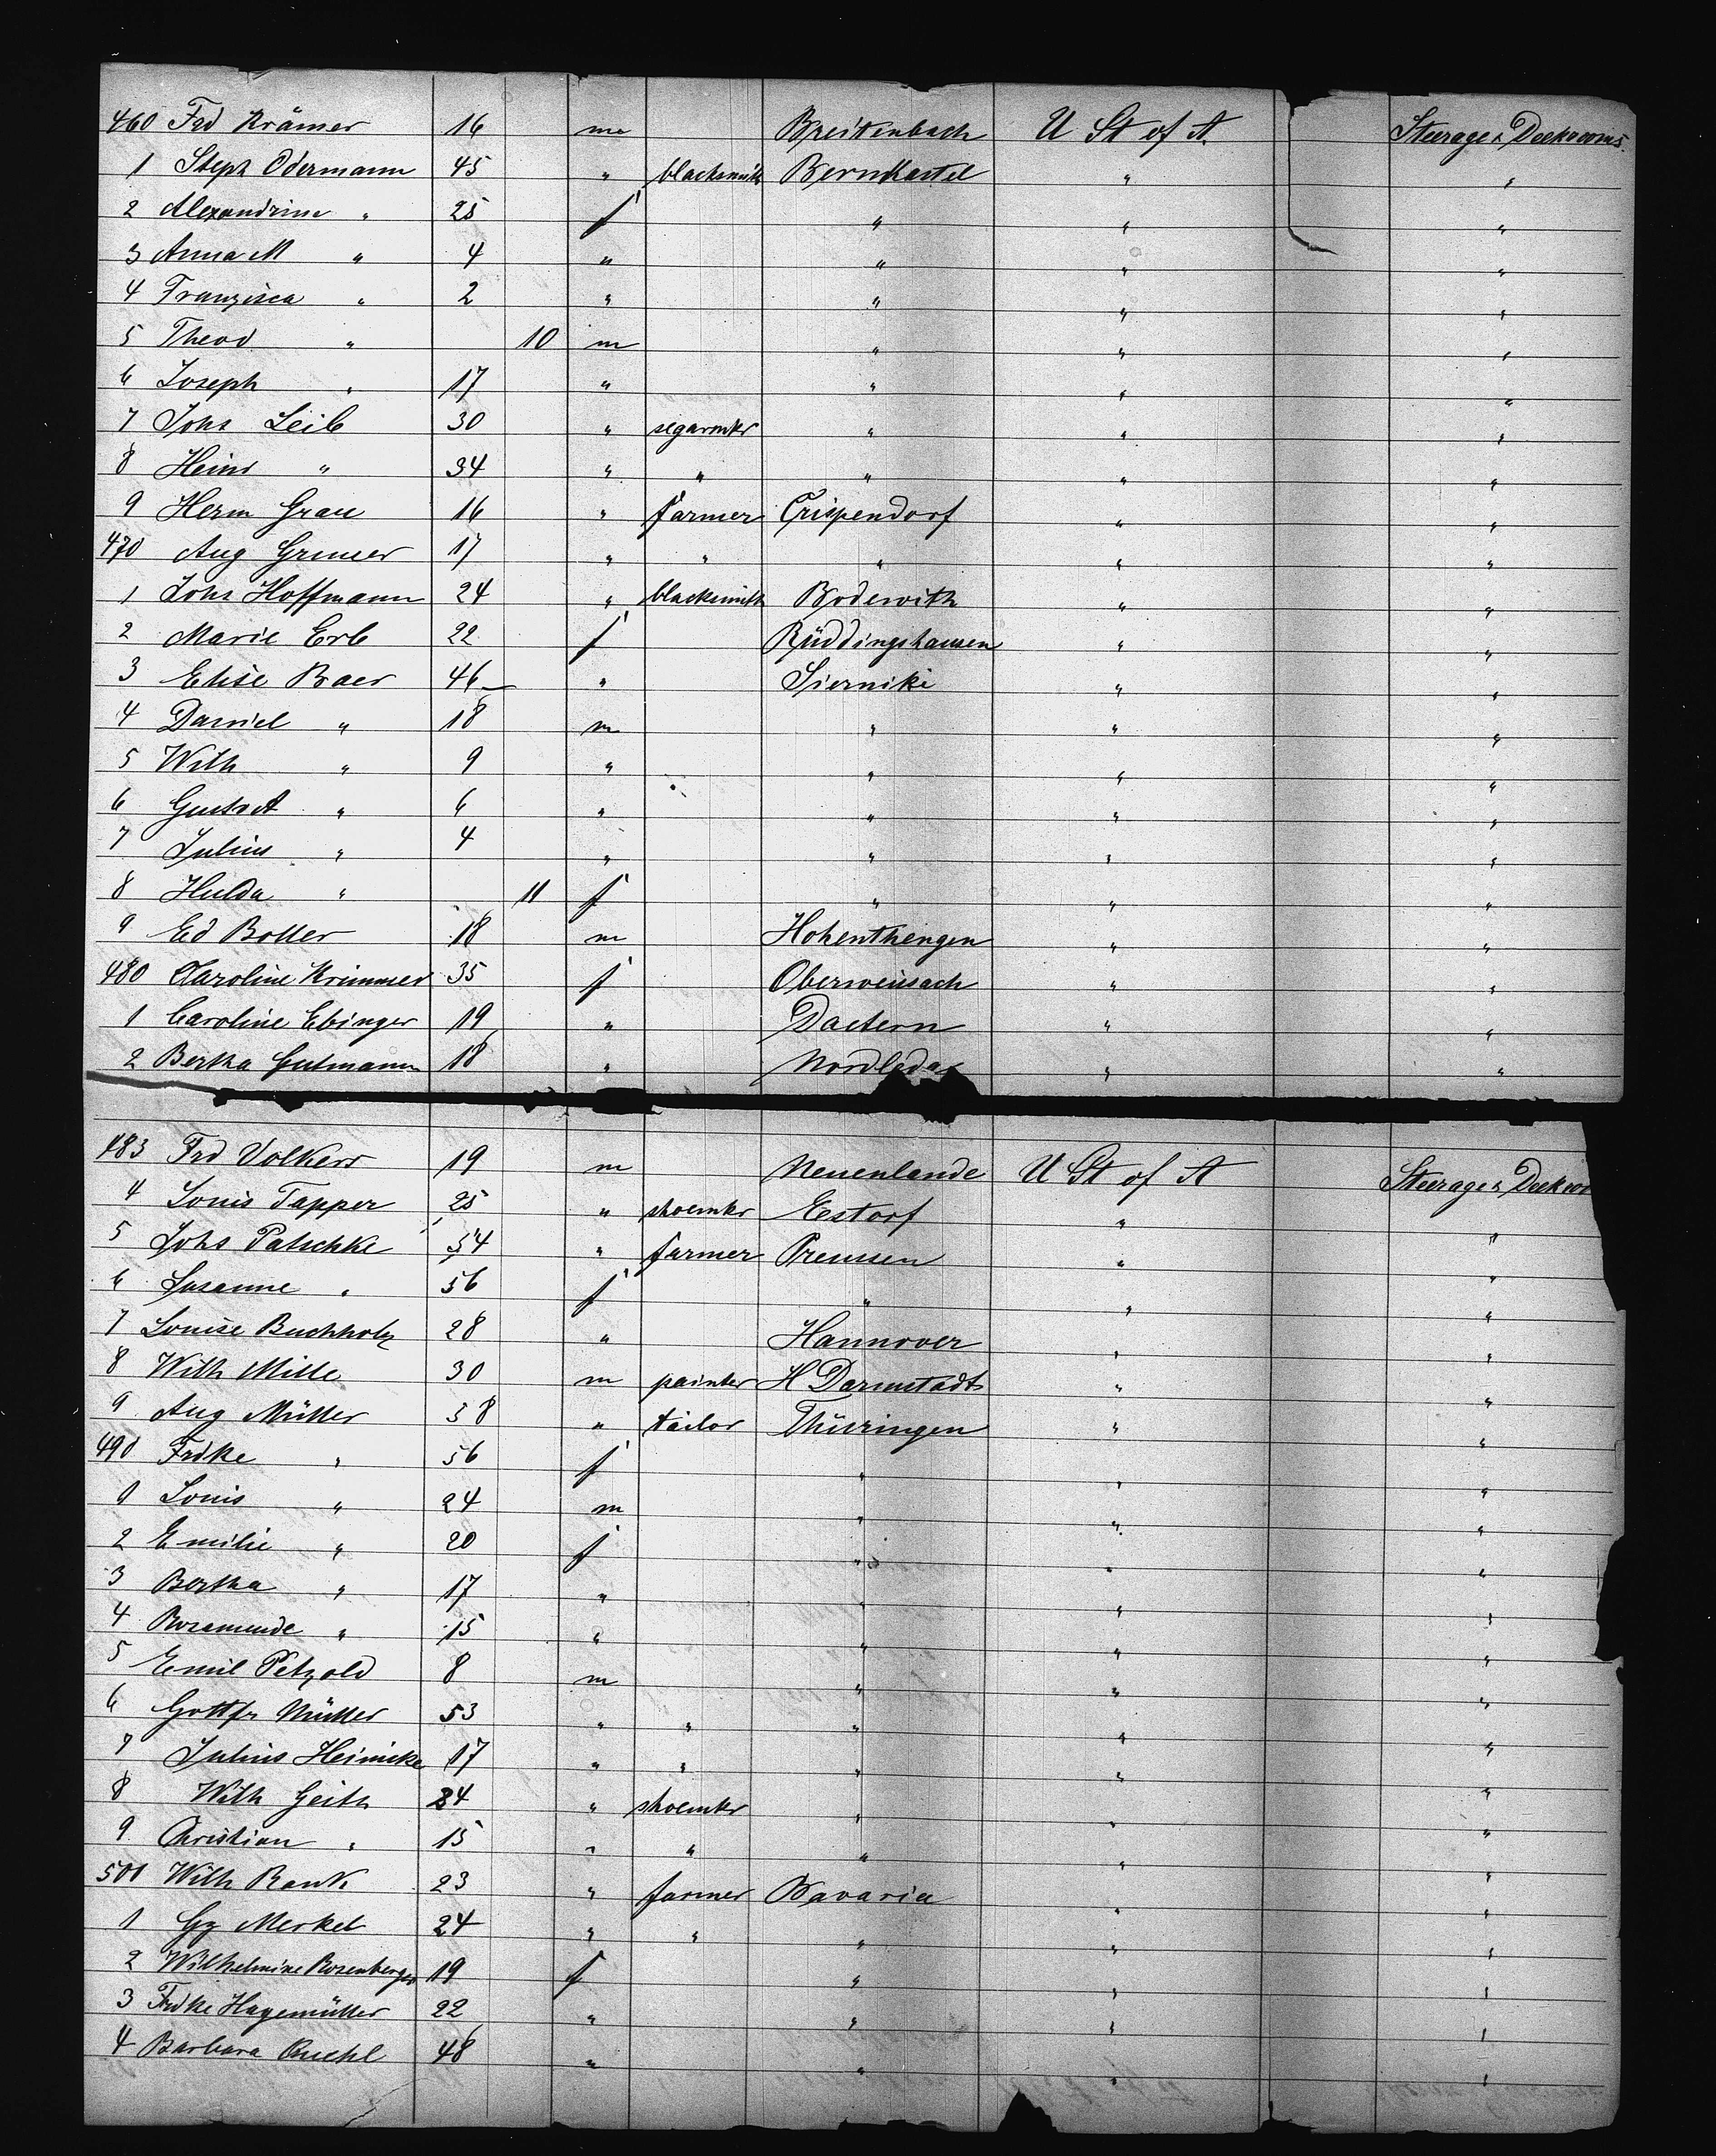 460 Frd Krämer 16 m Breitenbach U St of A. Steerage & Deckrooms.
1 Steph Odermann 45 " blacksmith Bernkastel " "
2 Alexandrine " 25 f " " "
3 Anna M " 4 " " " "
4 Franzisca " 2 " " " "
5 Theod " 10 m " " "
6 Joseph " 17 " " " "
7 Johs Leib 30 " segarmkr " " "
8 Heinr " 34 " " " " "
9 Herm Grau 16 " farmer Crispendorf " "
470 Aug Gruner 17 " " " " "
1 Johs Hoffmann 24 " blacksmith Bodewith " "
2 Marie Erb 22 f Rüddingshausen " "
3 Elise Baer 46 " Siernike " "
4 Daniel " 18 m " " "
5 Wilh " 9 " " " "
6 Gust A " 6 " " " "
7 Julius " 4 " " " "
8 Hulda " 11 f " " "
9 Ed Boller 18 m Hohenthengen " "
480 Caroline Krimmer 35 f Oberweissach " "
1 Caroline Ebinger 19 " Daetern " "
2 Bertha Gutmann 18 " Nordleda " "
483 Frd Volkerr 19 m Neuenlande U St of A Steerage & Deckroo
4 Louis Tapper 25 " shoemkr Estorf " "
5 Johs Patschke 54 " farmer Preussen " "
6 Susanne " 56 f " " "
7 Louise Buchholz 28 " Hannover " "
8 Wilh Mille 30 m painter H Darmstadt " "
9 Aug Müller 38 " tailor Thüringen " "
490 Frdke " 56 f " " "
1 Louis " 24 m " " "
2 Emilie " 20 f " " "
3 Bertha " 17 " " " "
4 Rosamunde " 15 " " " "
5 Emil Petzold 8 m " " "
6 Gottfr Müller 53 " " " " "
7 Julius Heinicke 17 " " " " "
8 Wilh Geith 24 " shoemkr " " "
9 Christian " 15 " " " " "
500 Wilh Rank 23 " farmer Bavaria " "
1 Gg Merkel 24 " " " " "
2 Wilhelmine Rosenberger 19 f " " "
3 Frdke Hagemüller 22 " " " "
4 Barbara 48 " " " "